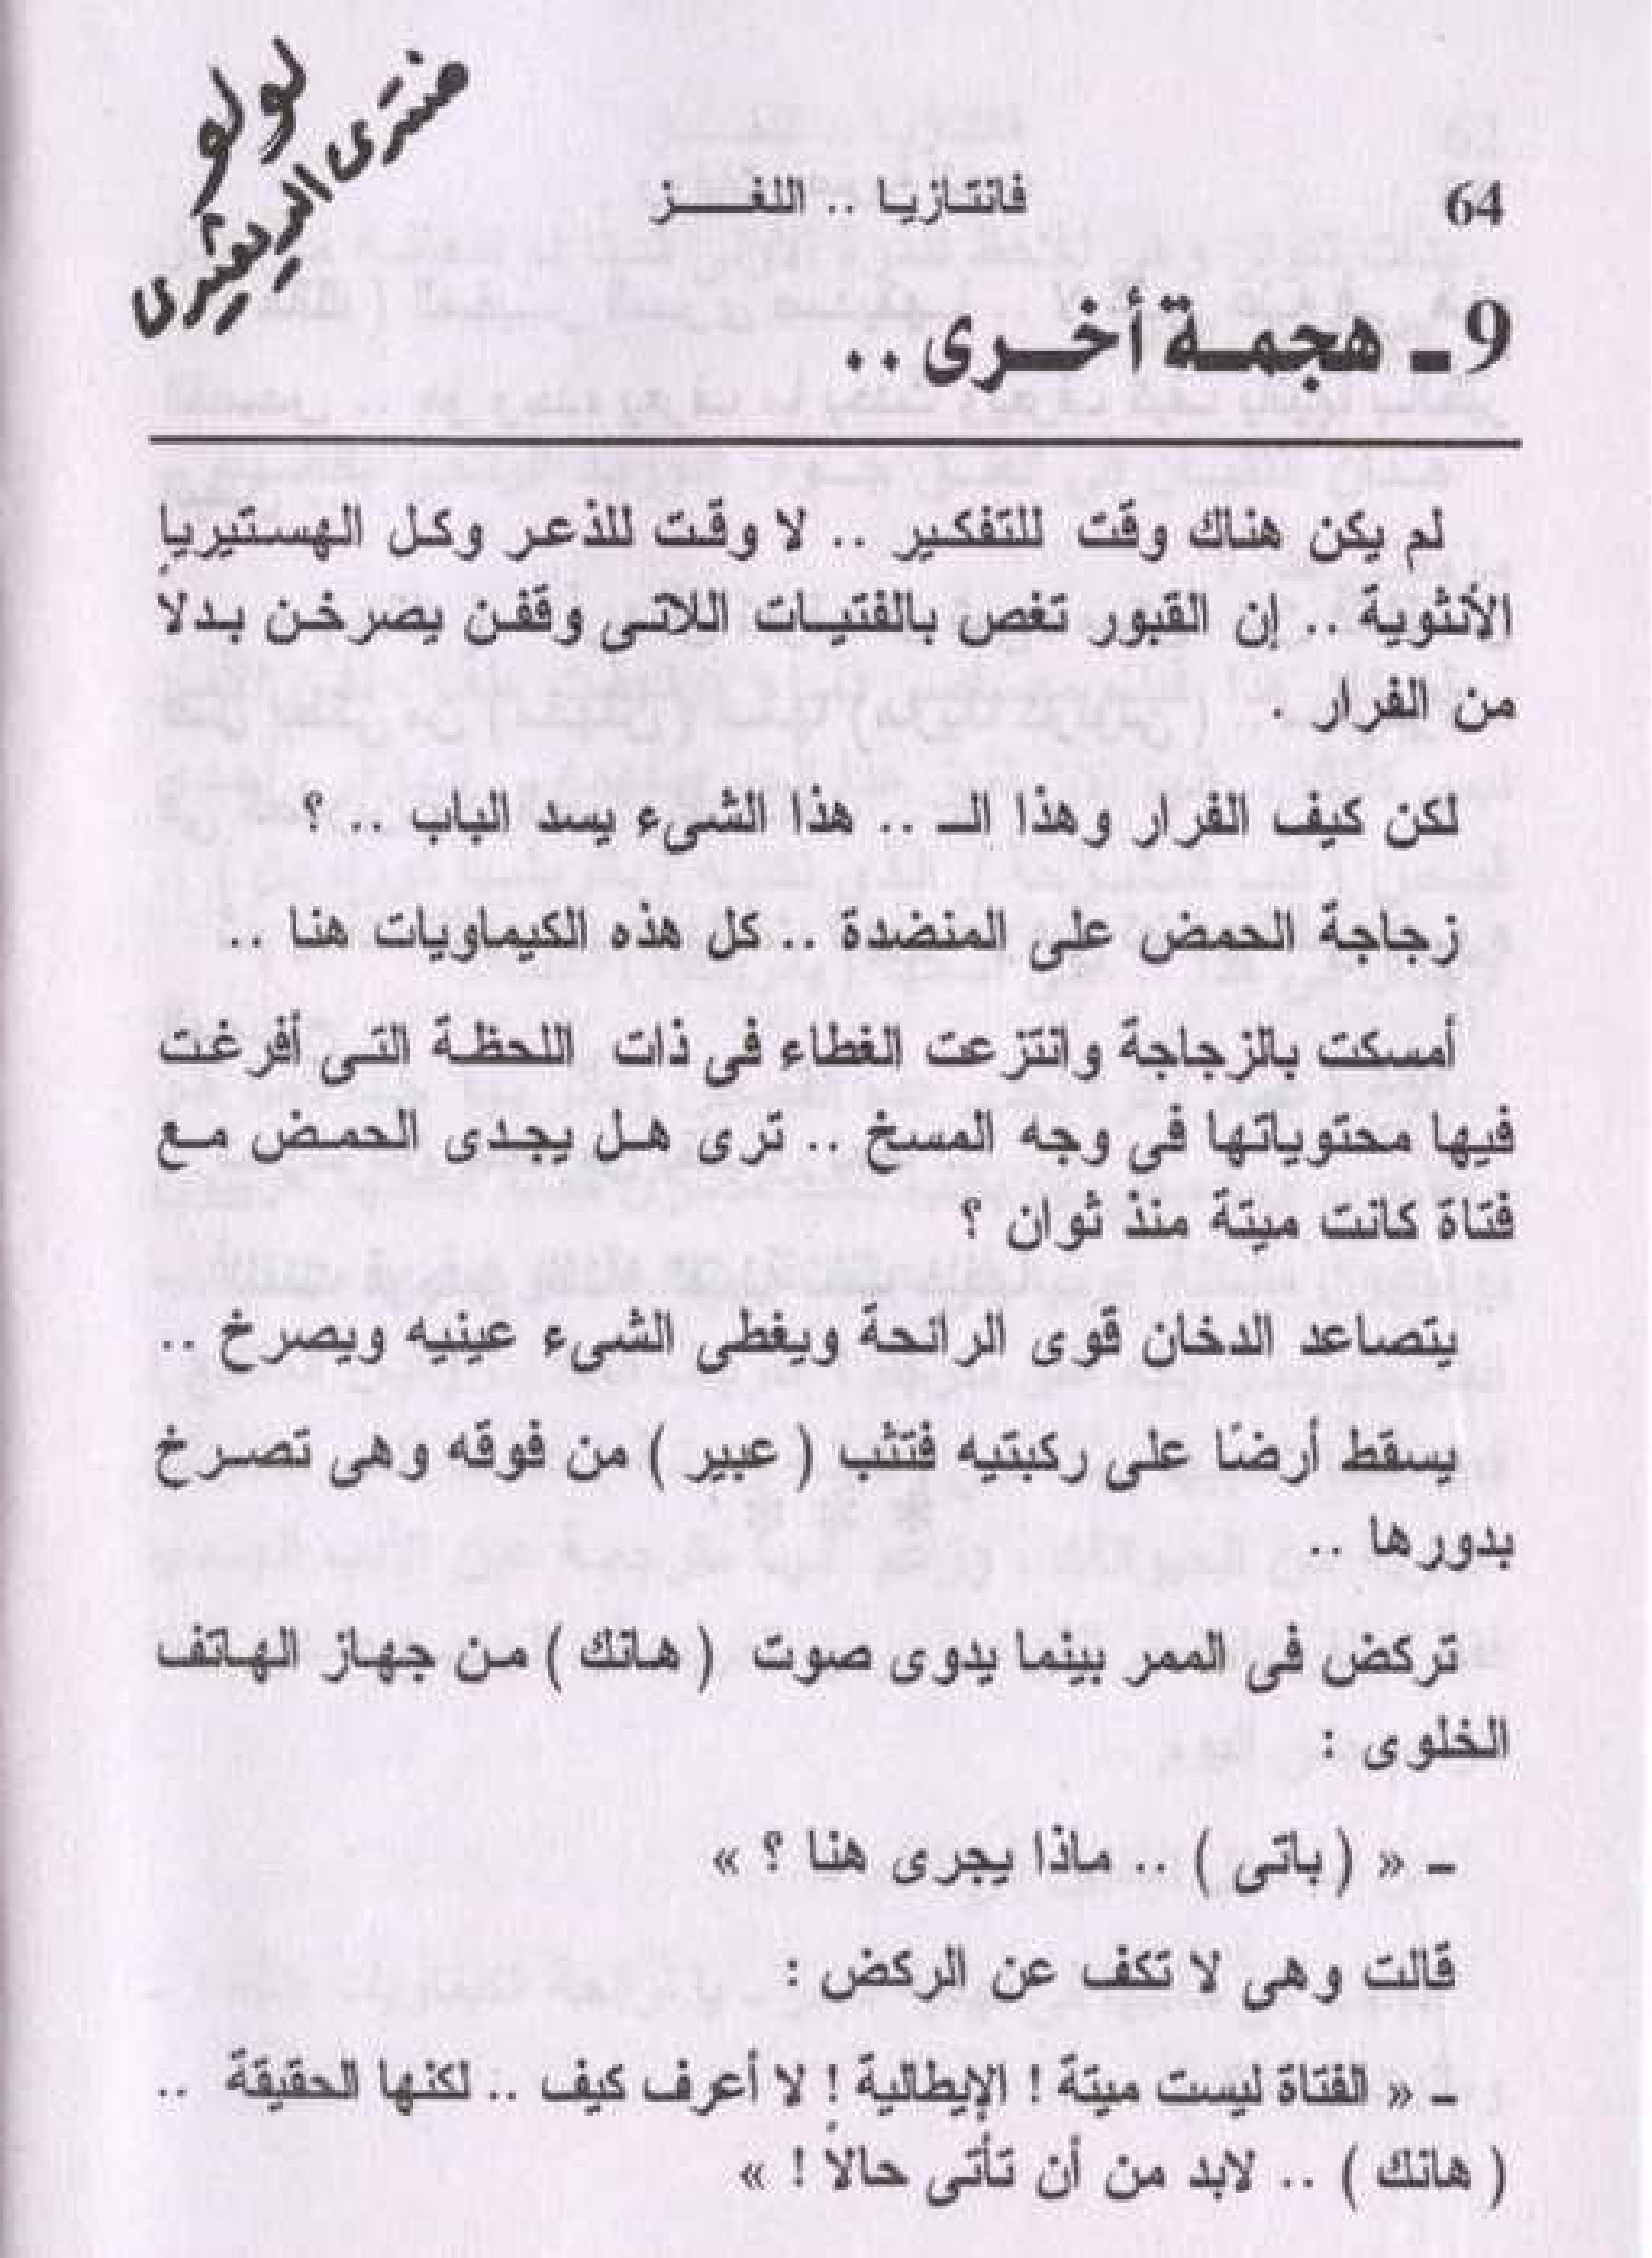 لولو
منتدى الديفيرى
64
فانتازيا .. اللغــــز
9 ـ هجمـة أخـرى ..
لم يكن هناك وقت للتفكير .. لا وقت للذعر وكل الهستيريا
الأنثوية .. إن القبور تغص بالفتيات اللاتى وقفن يصرخن بدلاً
من الفرار .
لكن كيف الفرار وهذا الـ .. هذا الشىء يسد الباب .. ؟
زجاجة الحمض على المنضدة .. كل هذه الكيماويات هنا ..
أمسكت بالزجاجة وانتزعت الغطاء فى ذات اللحظة التى أفرغت
فيها محتوياتها فى وجه المسخ .. ترى هل يجدى الحمض مع
فتاة كانت ميتة منذ ثوان ؟
يتصاعد الدخان قوى الرائحة ويغطى الشىء عينيه ويصرخ ..
يسقط أرضًا على ركبتيه فتثب ( عبير ) من فوقه وهى تصرخ
بدورها ..
تركض فى الممر بينما يدوى صوت ( هانك ) من جهاز الهاتف
الخلوى :
ـ « ( باتى ) .. ماذا يجرى هنا ؟ »
قالت وهى لا تكف عن الركض :
ـ « الفتاة ليست ميتة ! الإيطالية ! لا أعرف كيف .. لكنها الحقيقة ..
( هانك ) .. لابد من أن تأتى حالاً ! »